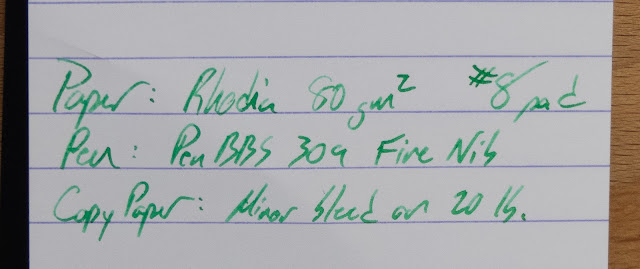 Paper: Rhodia 80 gm² #8 pad
Pen: PenBBS 309 Fine Nib
Copy Paper: Minor bleed on 20 lb.